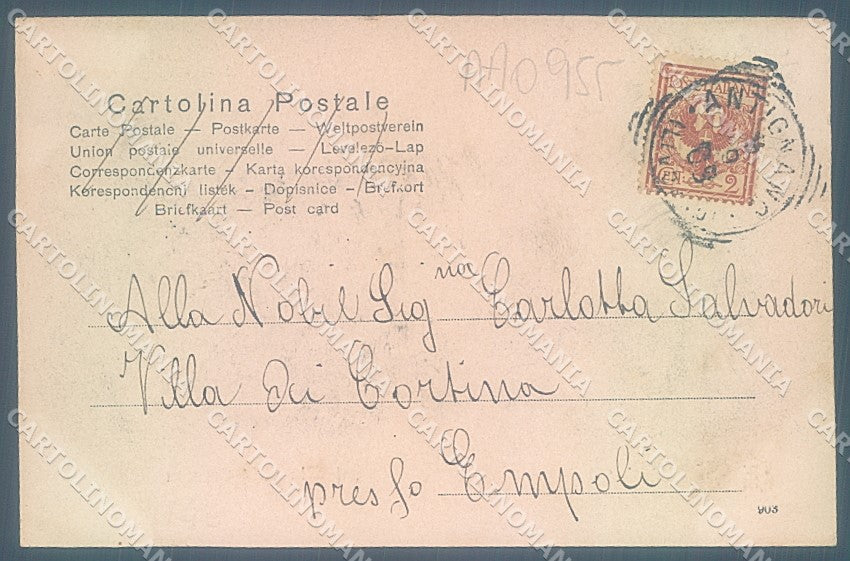 AA0955
Cartolina Postale
Carte Postale — Postkarte — Weltpostverein
Union postale universelle — Levelező-Lap
Correspondenzkarte — Karta korespondencyjna
Korespondencni listek — Dopisnice — Brefkort
Briefkaart — Post card
POSTE ITALIANE
CEN. 2
ANTIGNANO
Alla Nobil Signa Carlotta Salvadori
Villa di Cortina
presso Empoli
903
CARTOLINOMANIA